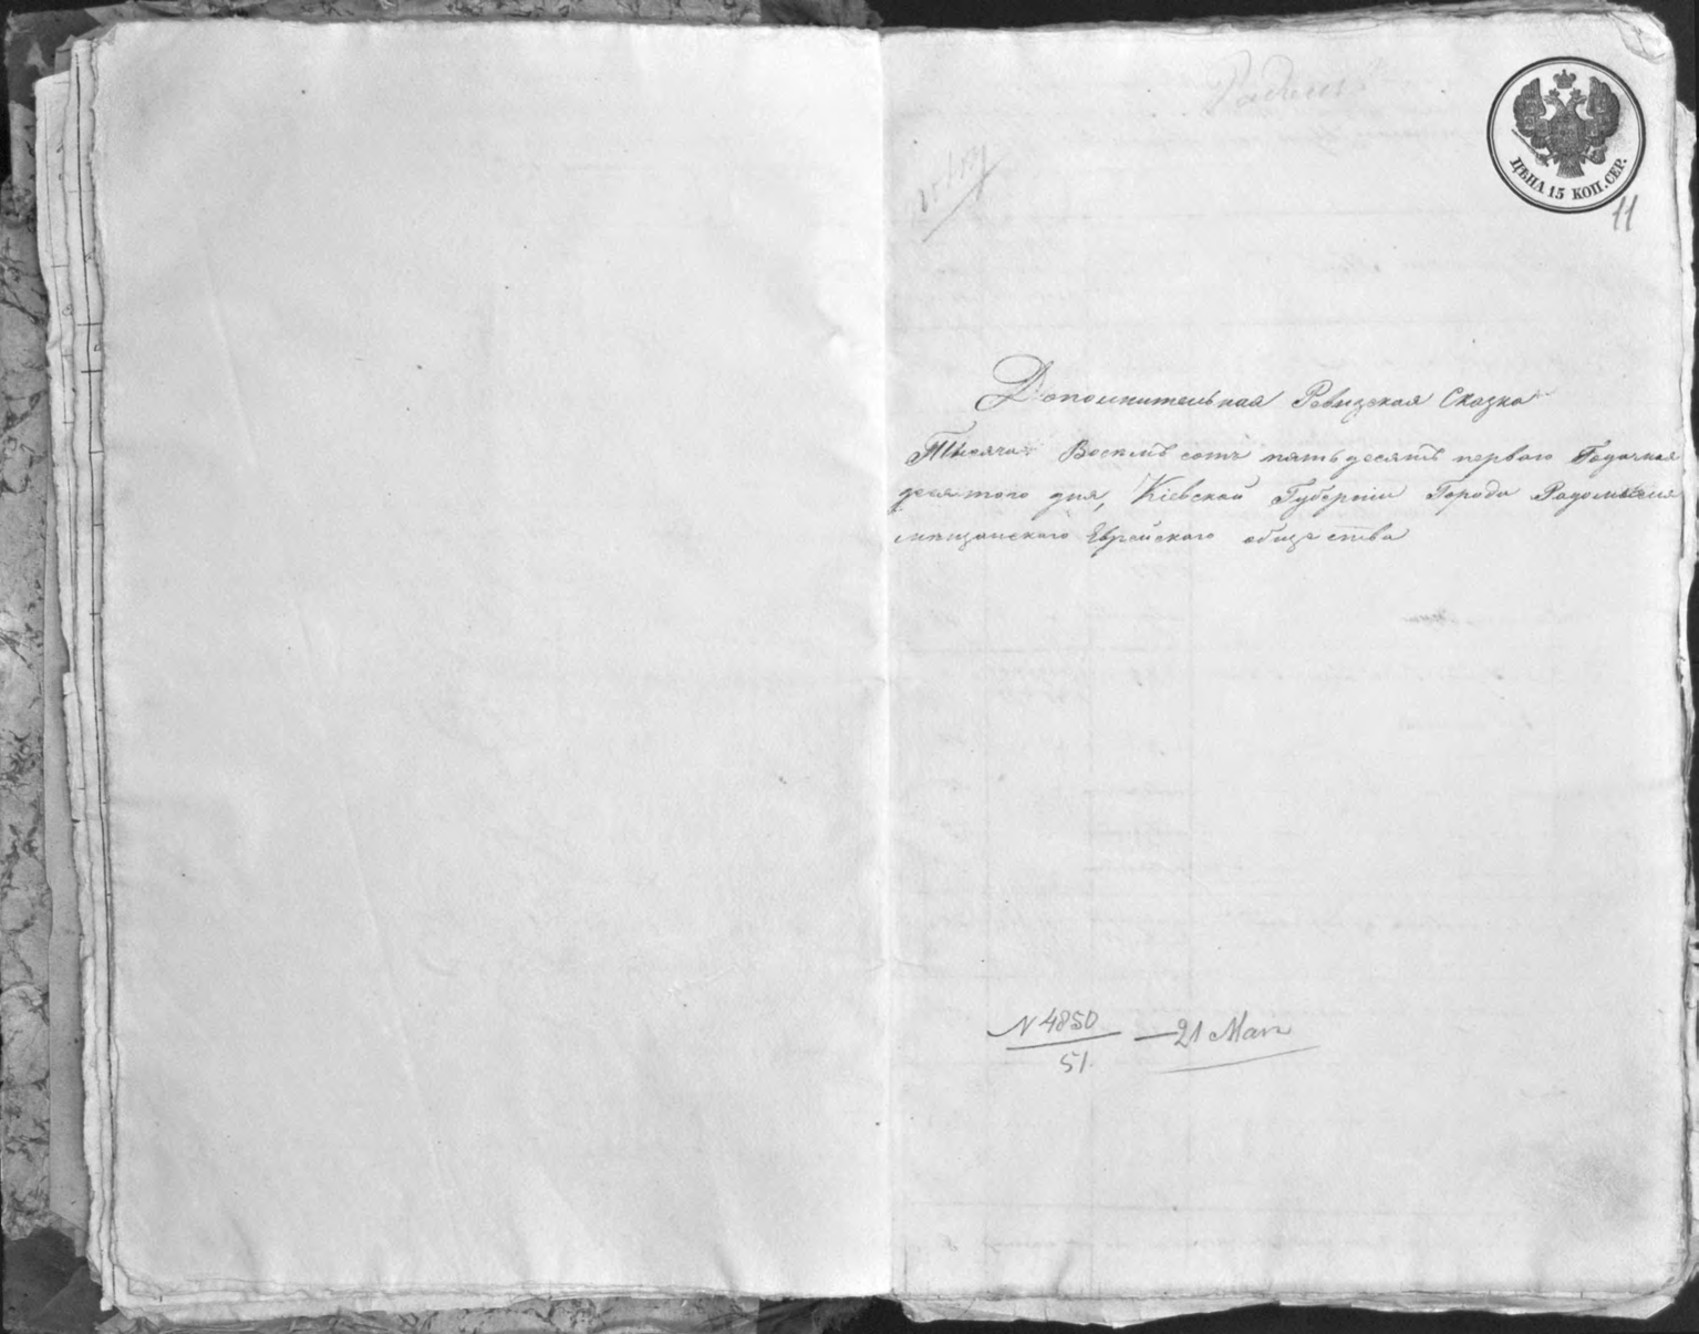 ЦѢНА 15 КОП. СЕР.
11
Дополнительная Ревизская Сказка
Тысяча Восемь сотъ пятьдесятъ первого Года
десятого дня, Кіевской Губерніи Города Радомысля
мѣщанского Еврейского общества
N 4850 — 21 Мая
51.